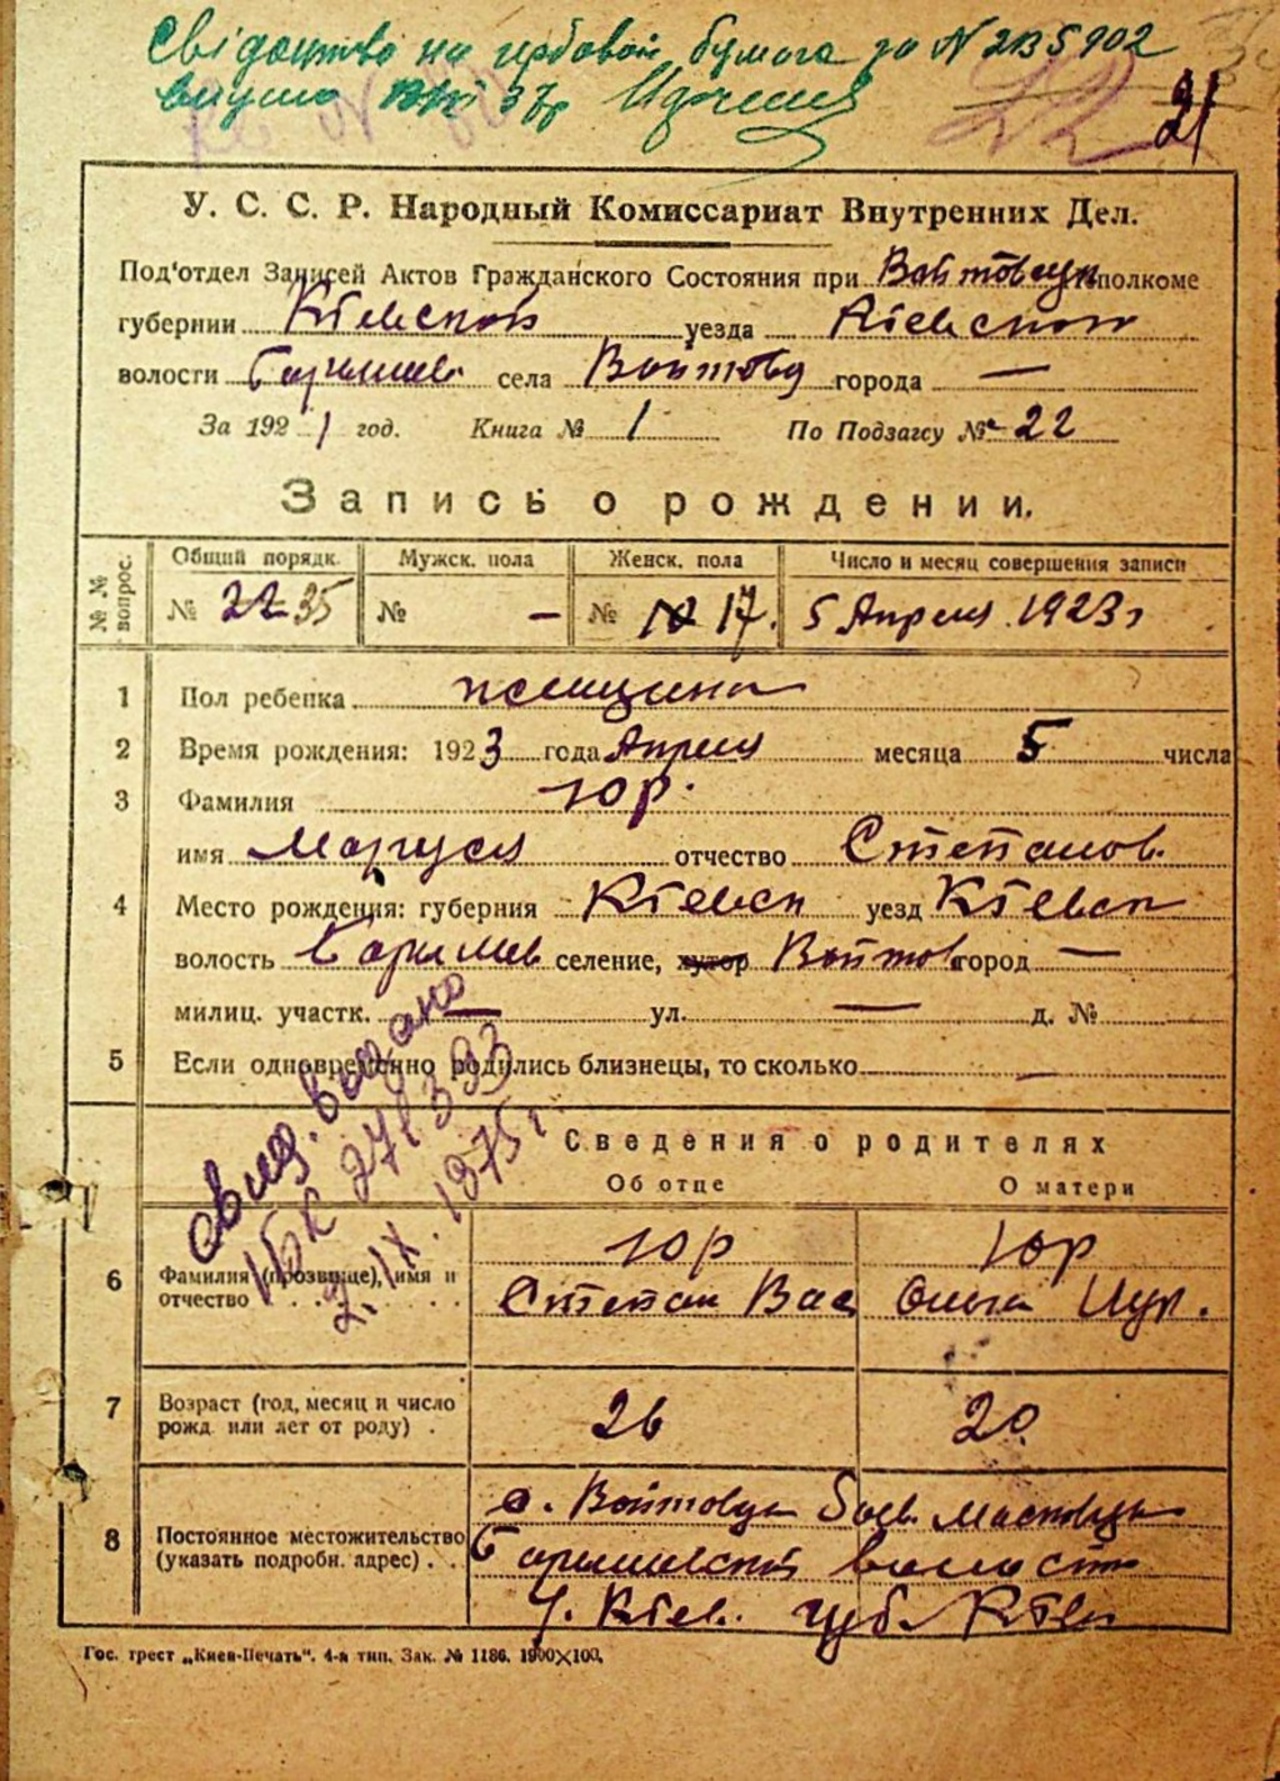 Свідоцтво на гербовой бумага за N 2135902
21
У. С. С. Р. Народный Комиссариат Внутренних Дел.
Под'отдел Записей Актов Гражданского Состояния при Войтовцуполкоме
губернии Кіевской уезда Кіевского
волости Баришев. села Войтовцы города —
За 1921 год. Книга № 1 По Подзагсу № 22
Запись о рождении.
№№ вопрос. Общий порядк. Мужск. пола Женск. пола Число и месяц совершения записи
№ 22 35 № — № 17. 5 Апреля 1923 г
1 Пол ребенка женщина
2 Время рождения: 1923 года Апреля месяца 5 числа
3 Фамилия Юр.
имя Маруся отчество Степанов.
4 Место рождения: губерния Кіевск уезд Кіевск
волость Баришев селение, хутор Войтов город —
милиц. участк. — ул. — д. №
5 Если одновременно родились близнецы, то сколько —
свид. выдано
ІБК 271393
2.IX.1975г
Сведения о родителях
Об отце О матери
6 Фамилия (прозвище), имя и отчество
Юр Юр
Степан Вас Ольга
7 Возраст (год, месяц и число рожд или лет от роду) .
26 20
8 Постоянное местожительство (указать подробн. адрес) . .
с. Войтовцы
Баришевской волости
У. Кіев. губ. Кіев
Гос. трест „Киев-Печать". 4-я тип. Зак. № 1186. 1900×100.